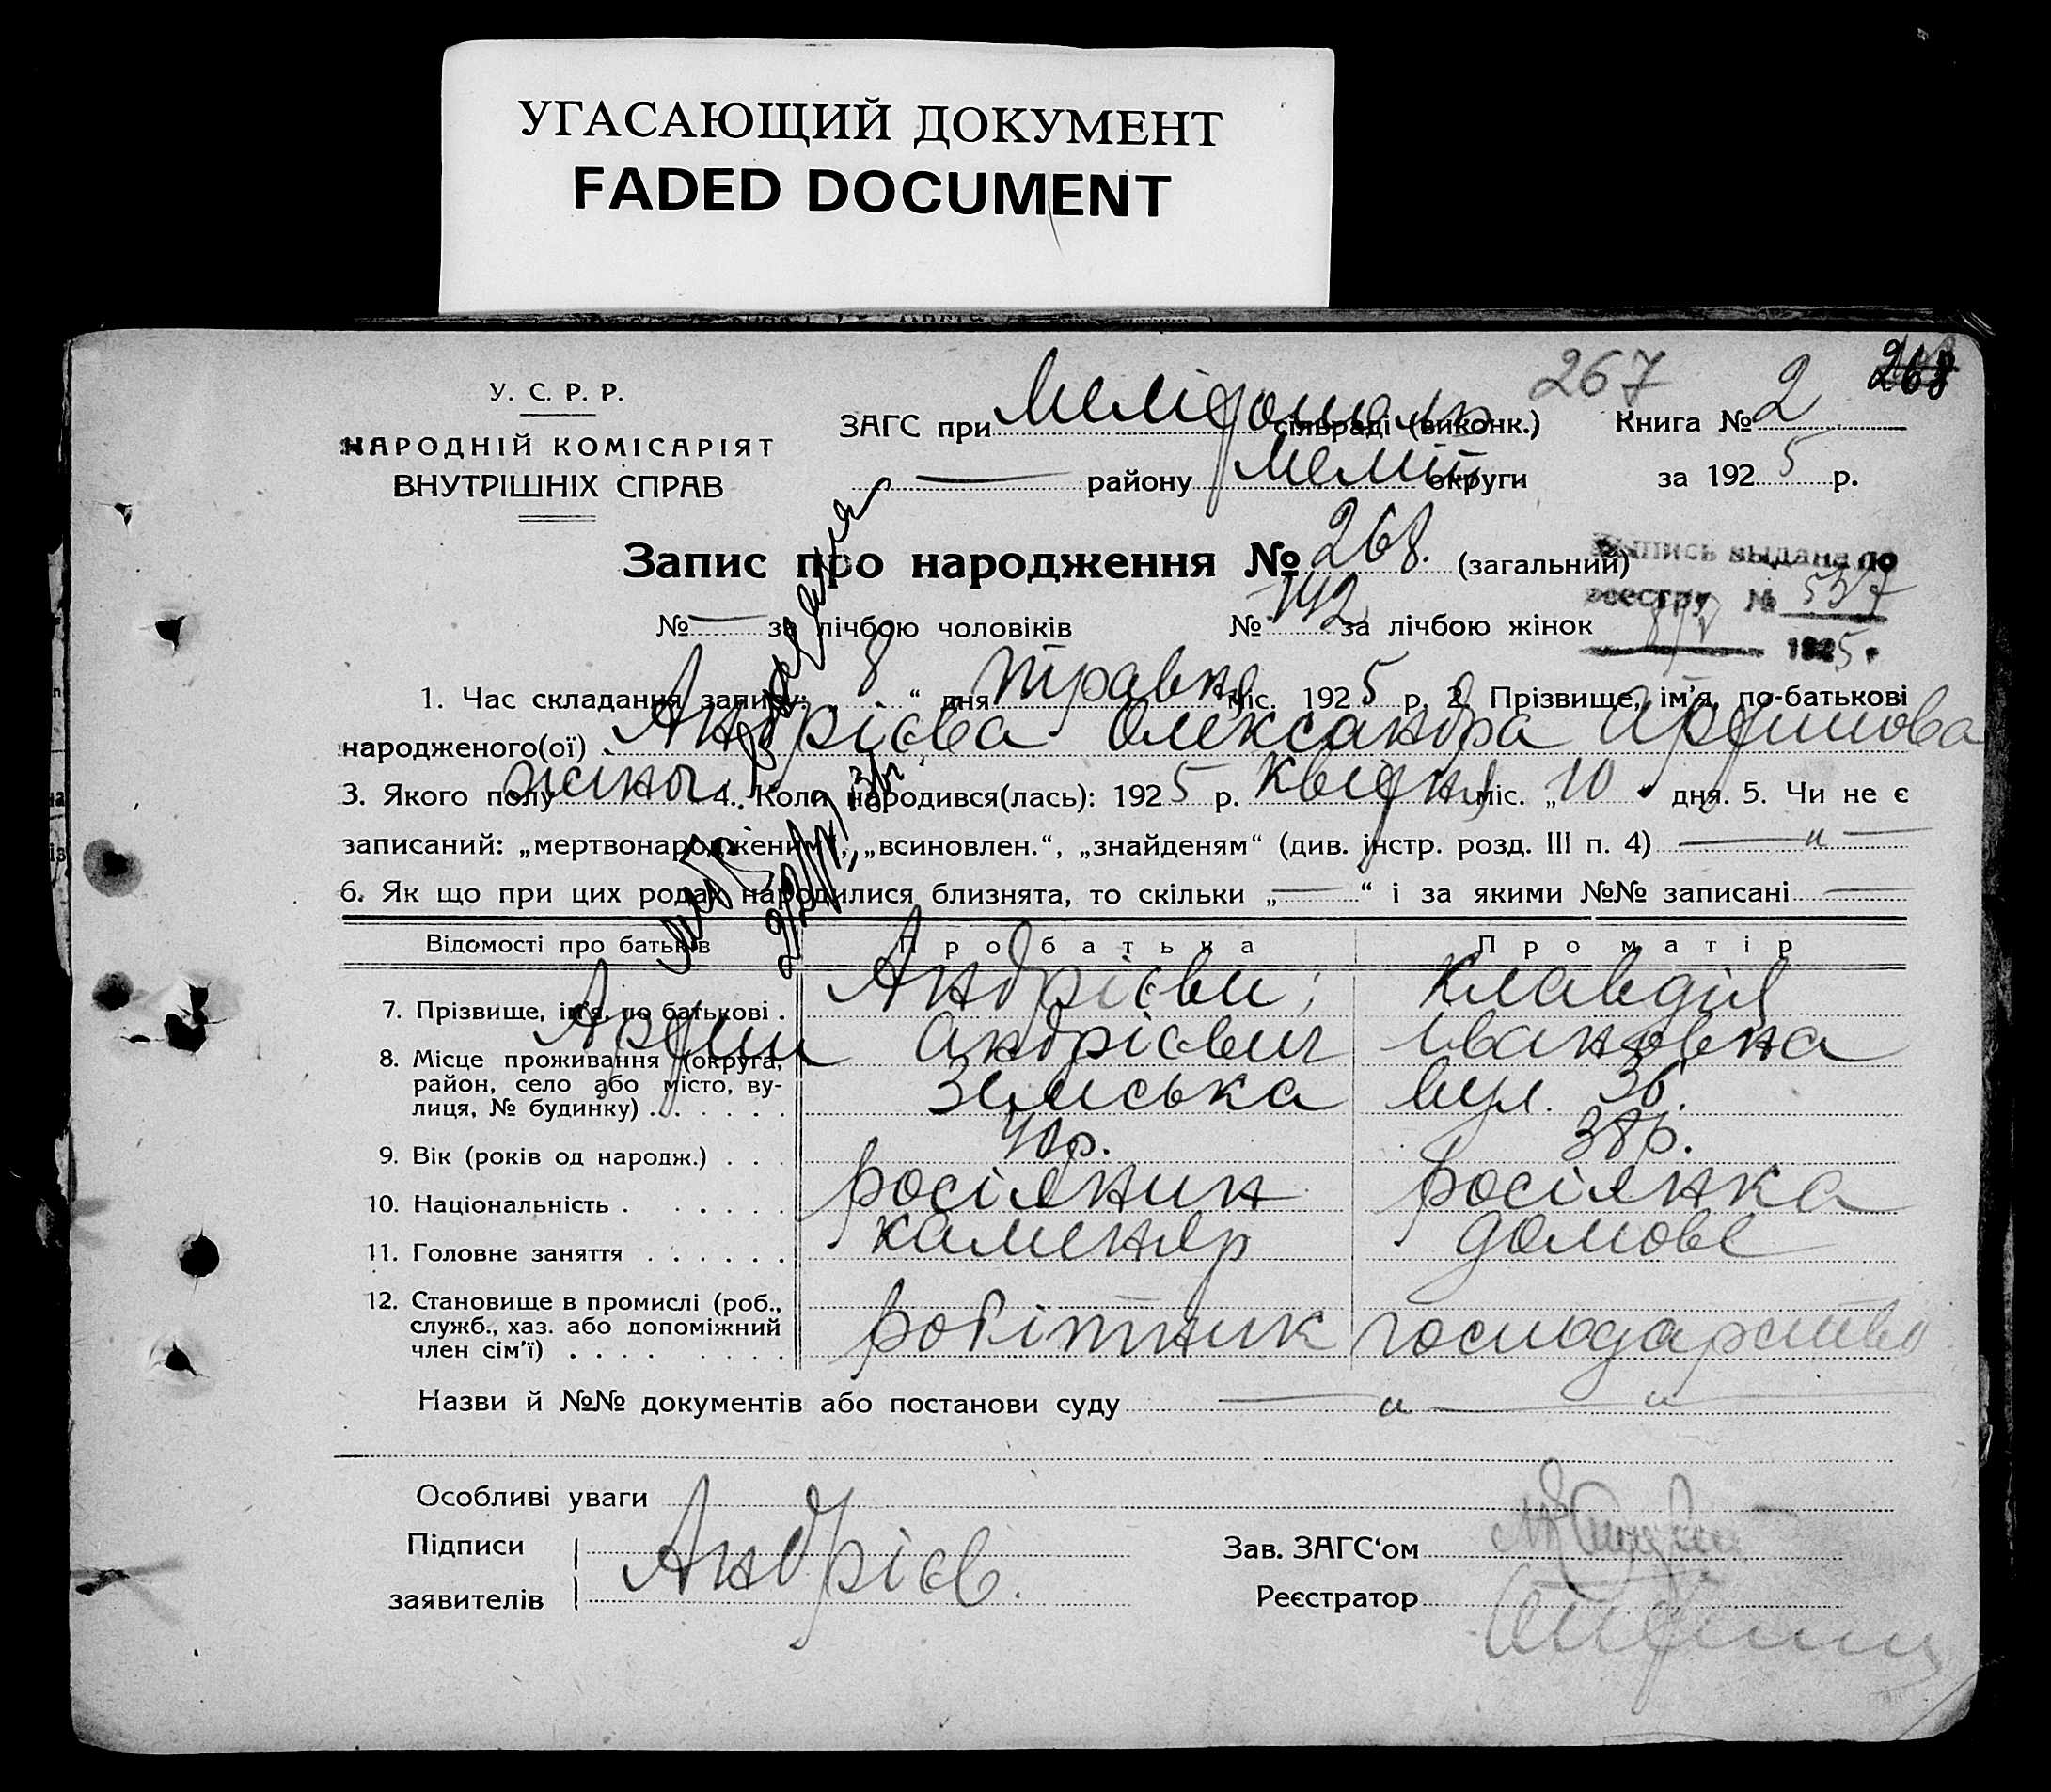 УГАСАЮЩИЙ ДОКУМЕНТ
FADED DOCUMENT
267
268
У. С. Р. Р.
НАРОДНІЙ КОМІСАРІЯТ
ВНУТРІШНІХ СПРАВ
ЗАГС при сільраді (виконк.) Книга № 2
району Меліт. округи за 1925 р.
Запис про народження № 268. (загальний)
№ — за лічбою чоловіків № 142 за лічбою жінок
Выпись выдана по
реестру № 537
1925 г
1. Час складання запису: 8 “ дня травня міс. 1925 р. 2. Прізвище, ім'я, по-батькові
народженого(ої) Андрієва Олександра
3. Якого полу жіноч. 4. Коли народився(лась): 1925 р. квітня міс. „10 дня. 5. Чи не є
записаний: „мертвонародженим“, „всиновлен.“, „знайденям“ (див. інстр. розд. III п. 4) — „ —
6. Як що при цих родах народилися близнята, то скільки „—“ і за якими №№ записані —
Відомості про батьків Про батька Про матір
7. Прізвище, ім'я, по батькові . Андрієви; Клавдія
андрієвич Івановна
8. Місце проживання (округа, район, село або місто, ву-
лиця, № будинку) . . . . . . Земська вул. 36.
9. Вік (років од народж.) . . . 40р. 38р.
10. Національність . . . . . . росіянин росіянка
11. Головне заняття . . . . . . каменяр домове
12. Становище в промислі (роб.,
служб., хаз. або допоміжний
член сім'ї) . . . . . . . . робітник господарство
Назви й №№ документів або постанови суду — „ — „ —
Особливі уваги
Підписи
заявителів Андрієв.
Зав. ЗАГС‘ом
Реєстратор